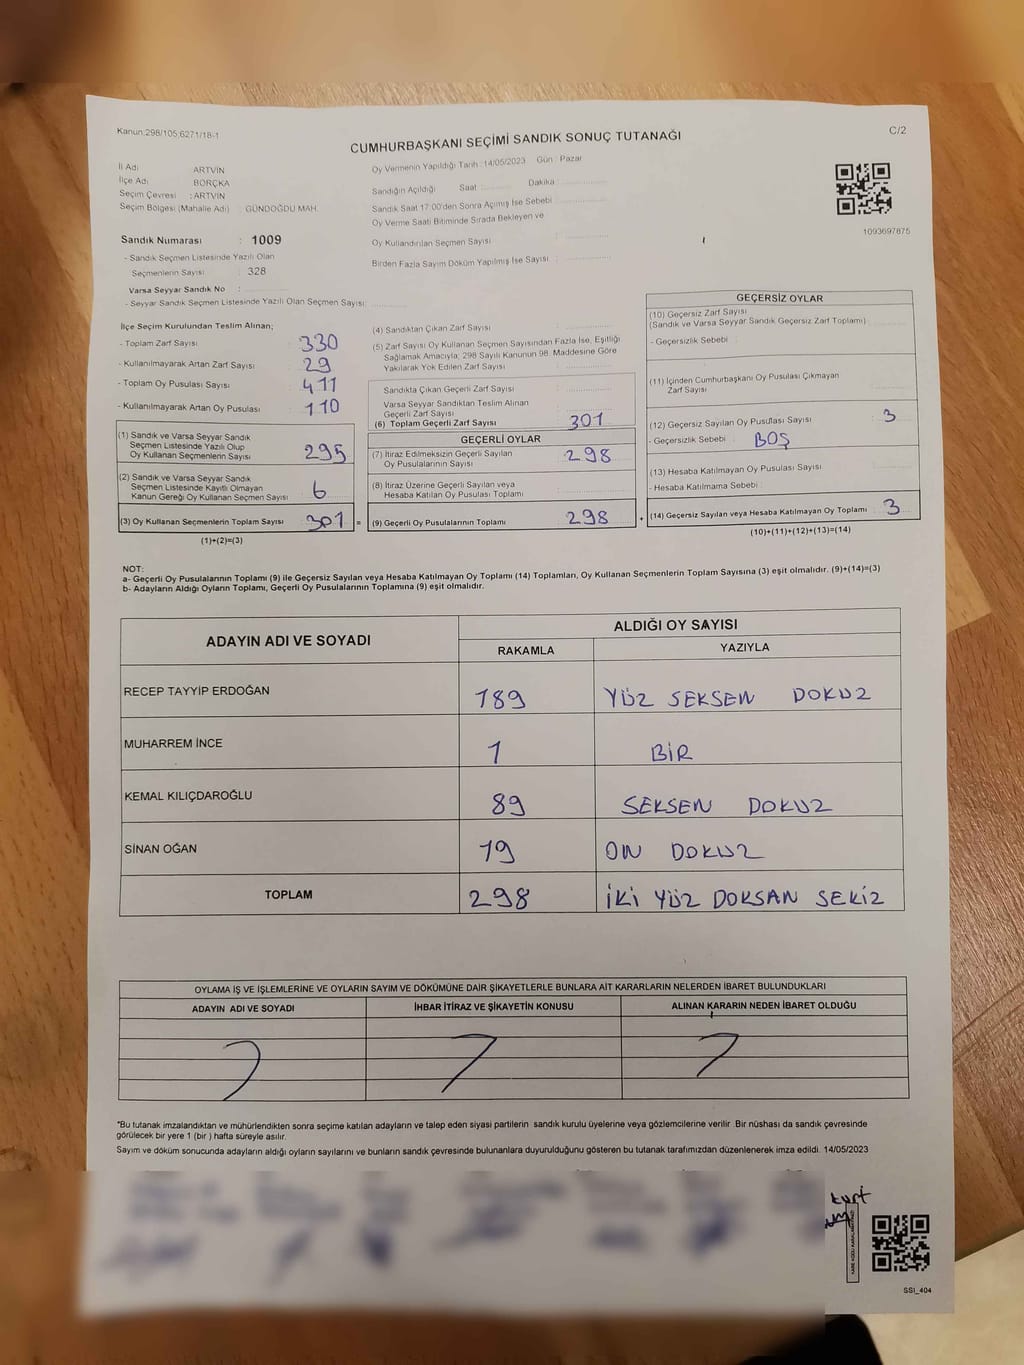 Kanun:298/105,6271/18-1
C/2
CUMHURBAŞKANI SEÇİMİ SANDIK SONUÇ TUTANAĞI
İl Adı ARTVİN
İlçe Adı BORÇKA
Seçim Çevresi : ARTVİN
Seçim Bölgesi (Mahalle Adı) : GÜNDOĞDU MAH.
Oy Vermenin Yapıldığı Tarih : 14/05/2023 Gün : Pazar
Sandığın Açıldığı Saat Dakika
Sandık Saat 17:00'den Sonra Açımış İse Sebebi
Oy Verme Saati Bitiminde Sırada Bekleyen ve
Oy Kullandırılan Seçmen Sayısı :
Birden Fazla Sayım Döküm Yapılmış İse Sayısı :
1093697875
Sandık Numarası : 1009
- Sandık Seçmen Listesinde Yazılı Olan
Seçmenlerin Sayısı : 328
Varsa Seyyar Sandık No :
- Seyyar Sandık Seçmen Listesinde Yazılı Olan Seçmen Sayısı :
İlçe Seçim Kurulundan Teslim Alınan;
- Toplam Zarf Sayısı : 330
- Kullanılmayarak Artan Zarf Sayısı : 29
- Toplam Oy Pusulası Sayısı : 411
- Kullanılmayarak Artan Oy Pusulası : 110
(1) Sandık ve Varsa Seyyar Sandık
Seçmen Listesinde Yazılı Olup
Oy Kullanan Seçmenlerin Sayısı : 295
(2) Sandık ve Varsa Seyyar Sandık
Seçmen Listesinde Kayıtlı Olmayan
Kanun Gereği Oy Kullanan Seçmen Sayısı : 6
(3) Oy Kullanan Seçmenlerin Toplam Sayısı : 301 =
(1)+(2)=(3)
(4) Sandıktan Çıkan Zarf Sayısı :
(5) Zarf Sayısı Oy Kullanan Seçmen Sayısından Fazla İse, Eşitliği
Sağlamak Amacıyla; 298 Sayılı Kanunun 98. Maddesine Göre
Yakılarak Yok Edilen Zarf Sayısı :
Sandıkta Çıkan Geçerli Zarf Sayısı :
Varsa Seyyar Sandıktan Teslim Alınan
Geçerli Zarf Sayısı :
(6) Toplam Geçerli Zarf Sayısı : 301
GEÇERLİ OYLAR
(7) İtiraz Edilmeksizin Geçerli Sayılan
Oy Pusulalarının Sayısı : 298
(8) İtiraz Üzerine Geçerli Sayılan veya
Hesaba Katılan Oy Pusulası Toplamı :
(9) Geçerli Oy Pusulalarının Toplamı : 298 +
GEÇERSİZ OYLAR
(10) Geçersiz Zarf Sayısı
(Sandık ve Varsa Seyyar Sandık Geçersiz Zarf Toplamı) :
- Geçersizlik Sebebi :
(11) İçinden Cumhurbaşkanı Oy Pusulası Çıkmayan
Zarf Sayısı :
(12) Geçersiz Sayılan Oy Pusulası Sayısı : 3
- Geçersizlik Sebebi : BOŞ
(13) Hesaba Katılmayan Oy Pusulası Sayısı :
- Hesaba Katılmama Sebebi :
(14) Geçersiz Sayılan veya Hesaba Katılmayan Oy Toplamı : 3
(10)+(11)+(12)+(13)=(14)
NOT:
a- Geçerli Oy Pusulalarının Toplamı (9) ile Geçersiz Sayılan veya Hesaba Katılmayan Oy Toplamı (14) Toplamları, Oy Kullanan Seçmenlerin Toplam Sayısına (3) eşit olmalıdır. (9)+(14)=(3)
b- Adayların Aldığı Oyların Toplamı, Geçerli Oy Pusulalarının Toplamına (9) eşit olmalıdır.
ADAYIN ADI VE SOYADI ALDIĞI OY SAYISI
RAKAMLA YAZIYLA
RECEP TAYYİP ERDOĞAN 189 YÜZ SEKSEN DOKUZ
MUHARREM İNCE 1 BİR
KEMAL KILIÇDAROĞLU 89 SEKSEN DOKUZ
SİNAN OĞAN 19 ON DOKUZ
TOPLAM 298 İKİ YÜZ DOKSAN SEKİZ
OYLAMA İŞ VE İŞLEMLERİNE VE OYLARIN SAYIM VE DÖKÜMÜNE DAİR ŞİKAYETLERLE BUNLARA AİT KARARLARIN NELERDEN İBARET BULUNDUKLARI
ADAYIN ADI VE SOYADI İHBAR İTİRAZ VE ŞİKAYETİN KONUSU ALINAN KARARIN NEDEN İBARET OLDUĞU
*Bu tutanak imzalandıktan ve mühürlendikten sonra seçime katılan adayların ve talep eden siyasi partilerin sandık kurulu üyelerine veya gözlemcilerine verilir. Bir nüshası da sandık çevresinde
görülecek bir yere 1 (bir ) hafta süreyle asılır.
Sayım ve döküm sonucunda adayların aldığı oyların sayılarını ve bunların sandık çevresinde bulunanlara duyurulduğunu gösteren bu tutanak tarafımızdan düzenlenerek imza edildi. 14/05/2023
kurt
SSI_404